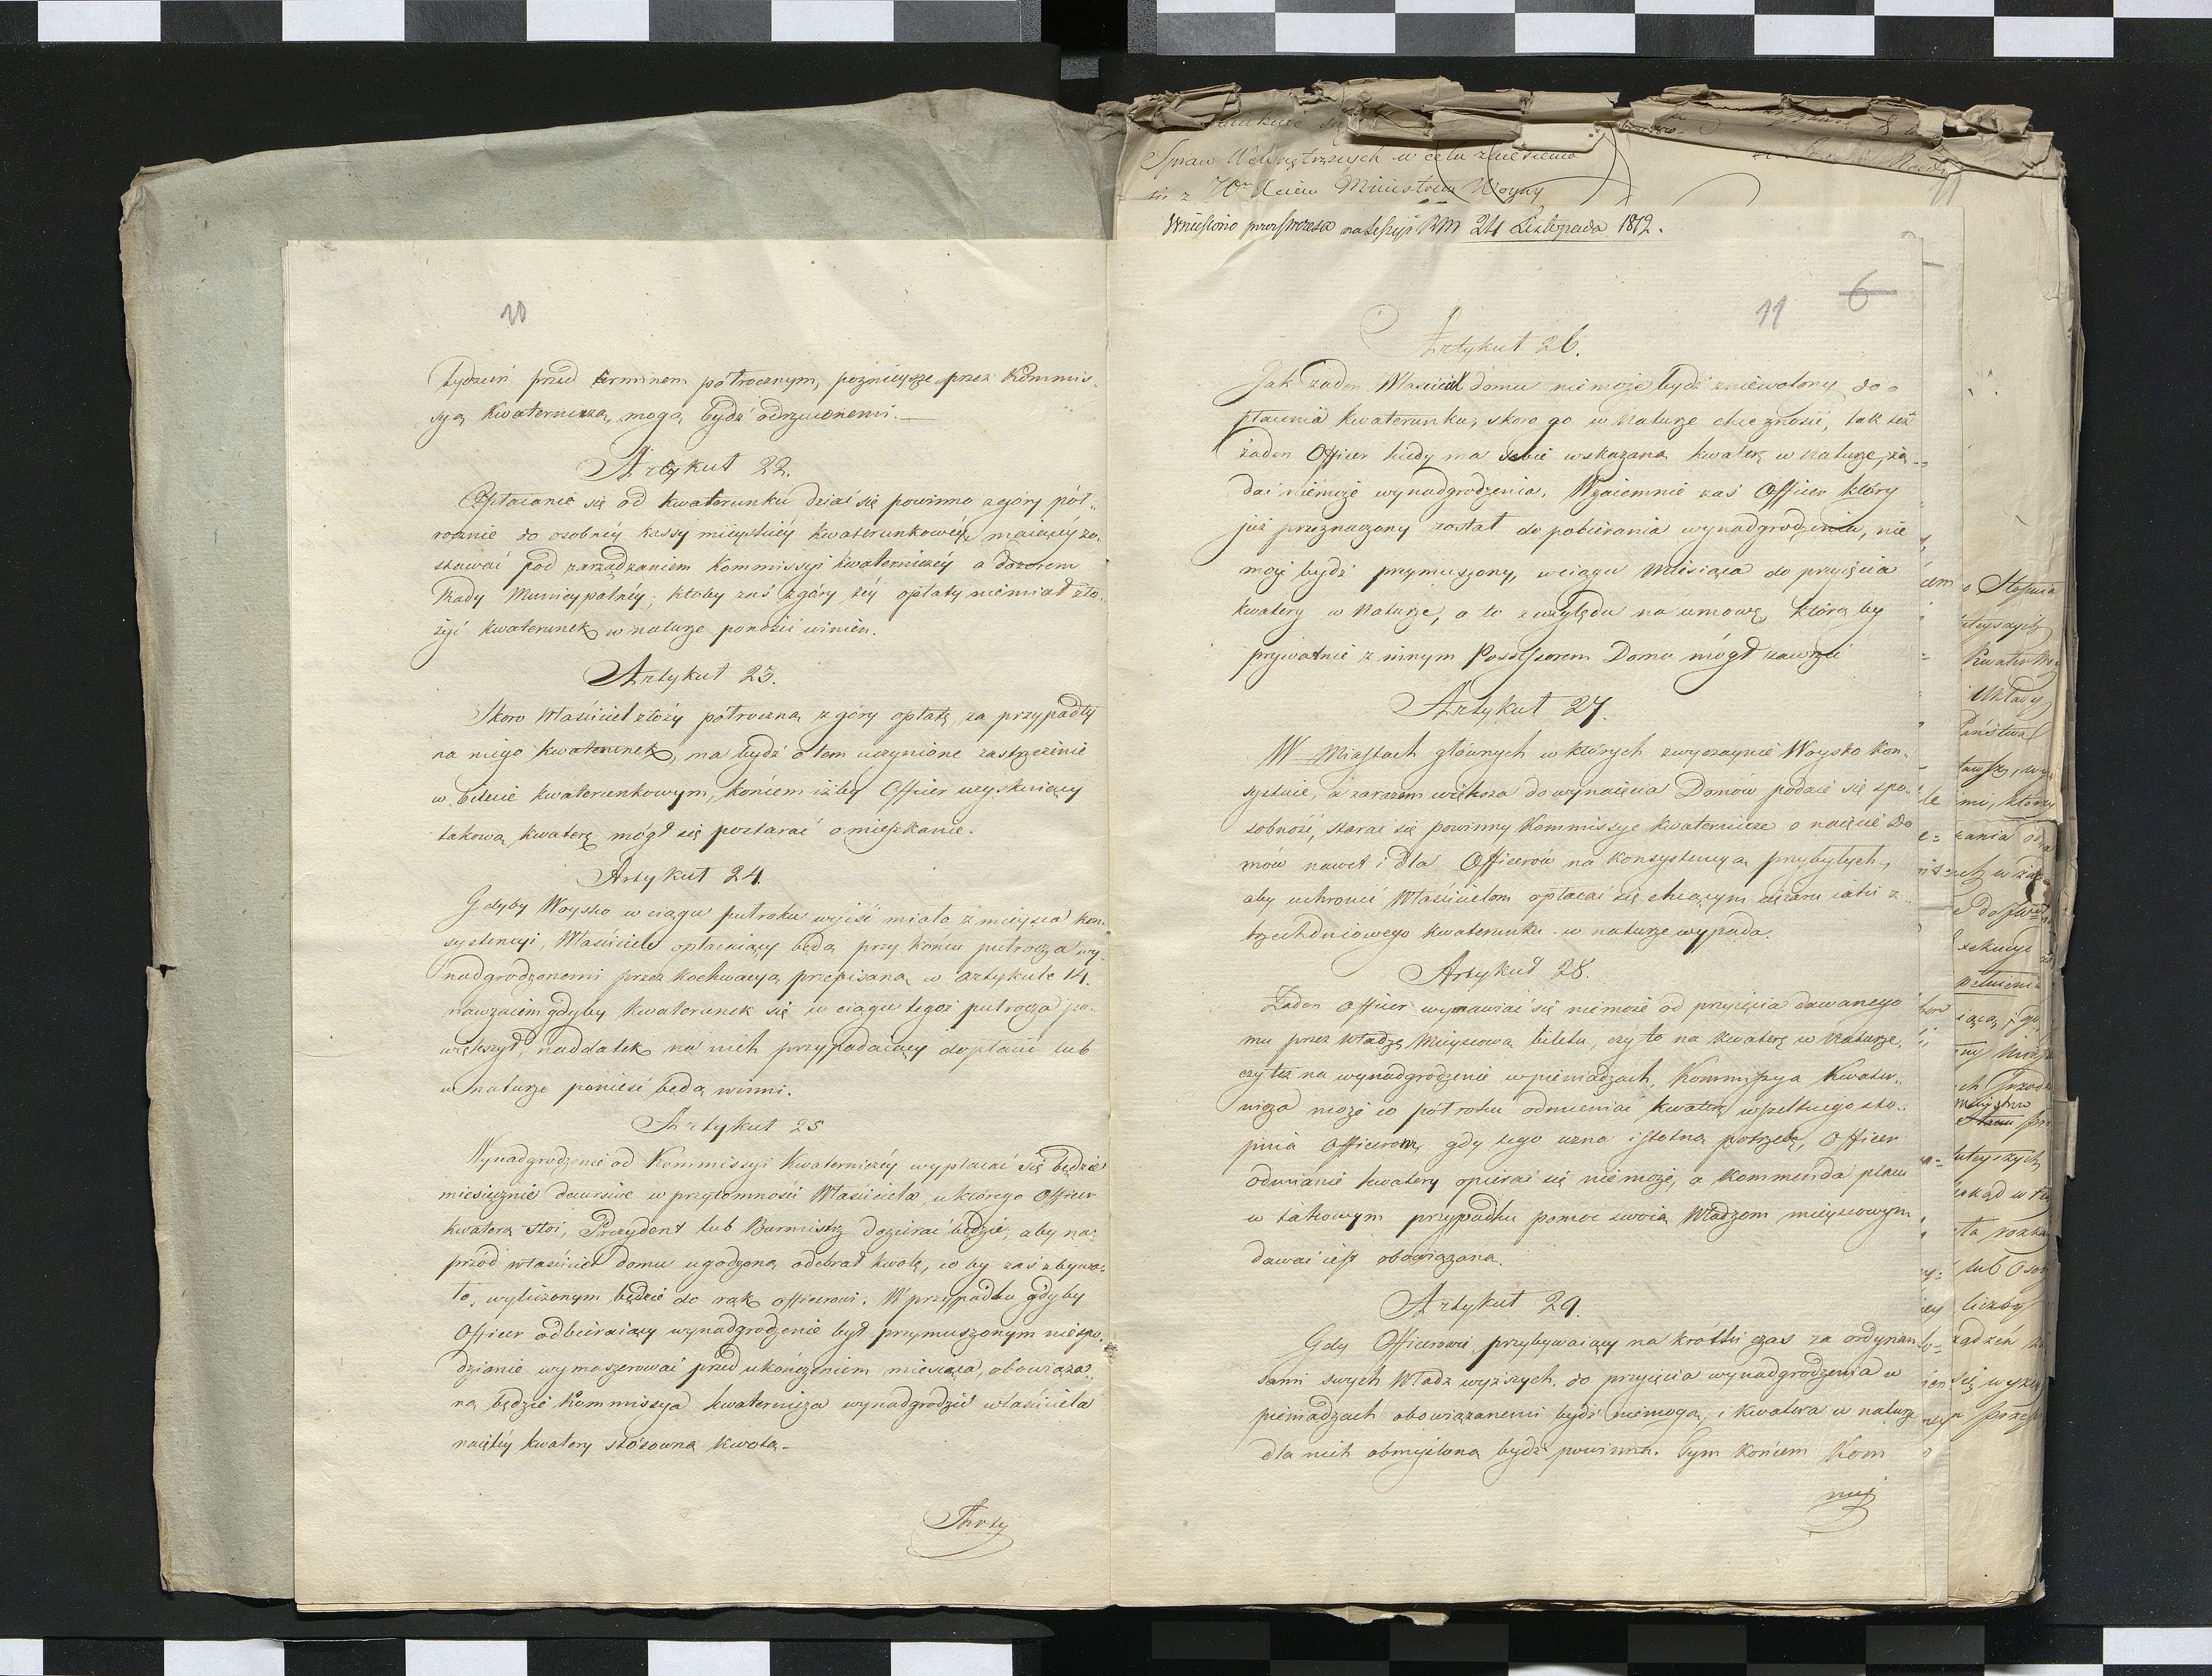 10
tydzień przed terminem półrocznym, pozniéysze przez Kommis-
syą Kwaterniczą, mogą bydź odrzuconemi.—
Artykuł 22.
Opłacanie się od kwaterunku dziać się powinno z góry pół-
rocznie do osobnéy kassy mieyskiéy kwaterunkowéy, maiącéy zo-
stawać pod zarządzaniem Kommissyi kwaterniczéy a dozorem
Rady Municypalnéy; ktoby zaś z góry téy opłaty niemiał zło-
żyć kwaterunek w naturze ponosić winien.
Artykuł 23.
Skoro Właściciel złoży półroczną z góry opłatę, za przypadły
na niego kwaterunek, ma bydź o tem uczynione zastrzeżenie
w bilecie kwaterunkowym, końcem iżby Officer uzyskuiący
takową kwaterę mógł się postarać o mieszkanie.
Artykuł 24.
Gdyby Woysko w ciągu pułroku wyjść miało z mieysca kon-
systencyi, Właściciele opłacaiący będą przy końcu pułrocza wy-
nadgrodzonemi przez przepisaną w artykule 14.
nawzaiem gdyby kwaterunek się w ciągu tegoż pułrocza po-
większył, naddatek na nich przypadaiący dopłacić lub
w naturze ponieść będą winni.
Artykuł 25
Wynadgrodzenie od Kommissyi Kwaterniczéy wypłacać się będzie
miesięcznie decursive w przytomności Właściciela u którego Officer
kwaterą stoi, Prezydent lub Burmistrz dozierać będzie, aby na-
przód właściciel domu ugodzoną odebrał kwotę, co by zaś zbywa-
ło, wyliczonym będzie do rąk officerowi. W przypadku gdyby
Officer odbieraiący wynadgrodzenie był przymuszonym niespo-
dzianie wymaszerować przed ukończeniem miesiąca, obowiąza-
ną będzie Kommissya kwaternicza wynadgrodzić właściciela
naiętéy kwatery stósowną kwotą.—
Arty
Spraw Wewnętrznych w celu zniesienia
się z Ministrem Woyny
Wniesiono przez Prezesa na Sessyi RM 24 Listopada 1812.
11 6
Artykuł 26.
Jak żaden Właściciel domu niemoże bydź zniewolony do o-
płacenia kwaterunku, skoro go w naturze chce znosić, tak też
żaden Officer kiedy ma sobie wskazaną kwaterę w naturze, żą-
dać niemoże wynadgrodzenia. Wzaiemnie zaś Officer który
już przeznaczony został do pobierania wynadgrodzenia, nie
może bydź przymuszony, w ciągu miesiąca do przyięcia
kwatery w naturze, a to z względu na umowę, którą by
prywatnie z innym Possessorem Domu mógł zawrzeć
Artykuł 27.
W Miastach głównych w których zwyczaynie Woysko kon-
systuie, a zarazem większa do wynaięcia Domów podaie się spo-
sobność, starać się powinny Kommissye kwaternicze o naięcie Do
mów nawet i dla Officerów na konsystencyą przybyłych,
aby uchronić Właścicielom opłacać się chcącym ciężaru iaki z
trzechdniowego kwaterunku w naturze wypada.
Artykuł 28.
Żaden Officer wymawiać się niemoże od przyięcia dawanego
mu przez Władzę Mieyscową biletu, czy to na kwaterę w naturze,
czy też na wynadgrodzenie w pieniądzach, Kommissya Kwater-
nicza może co pół roku odmieniać kwaterę wszelkiego sto-
pnia Officerom, gdy tego uzna istotną potrzebę, Officer
odmianie kwatery opierać się niemoże, a Kommenda placu
w takowym przypadku pomoc swoią Władzom mieyscowym
dawać iest obowiązana.
Artykuł 29.
Gdy Officerowie przybywaiący na krótki czas za ordynan
sami swych Władz wyższych, do przyięcia wynadgrodzenia w
pieniądzach obowiązanemi bydź niemogą, i kwatera w naturze
dla nich obmyślona bydź powinna. Tym końcem Kom
mis